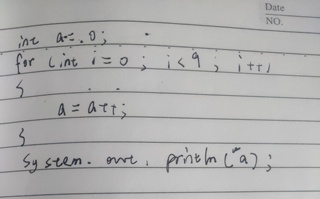 Date
NO.
int a=.0;
for (int i=0; i<9; i++)
{
a=a++;
}
System.out.println("a);